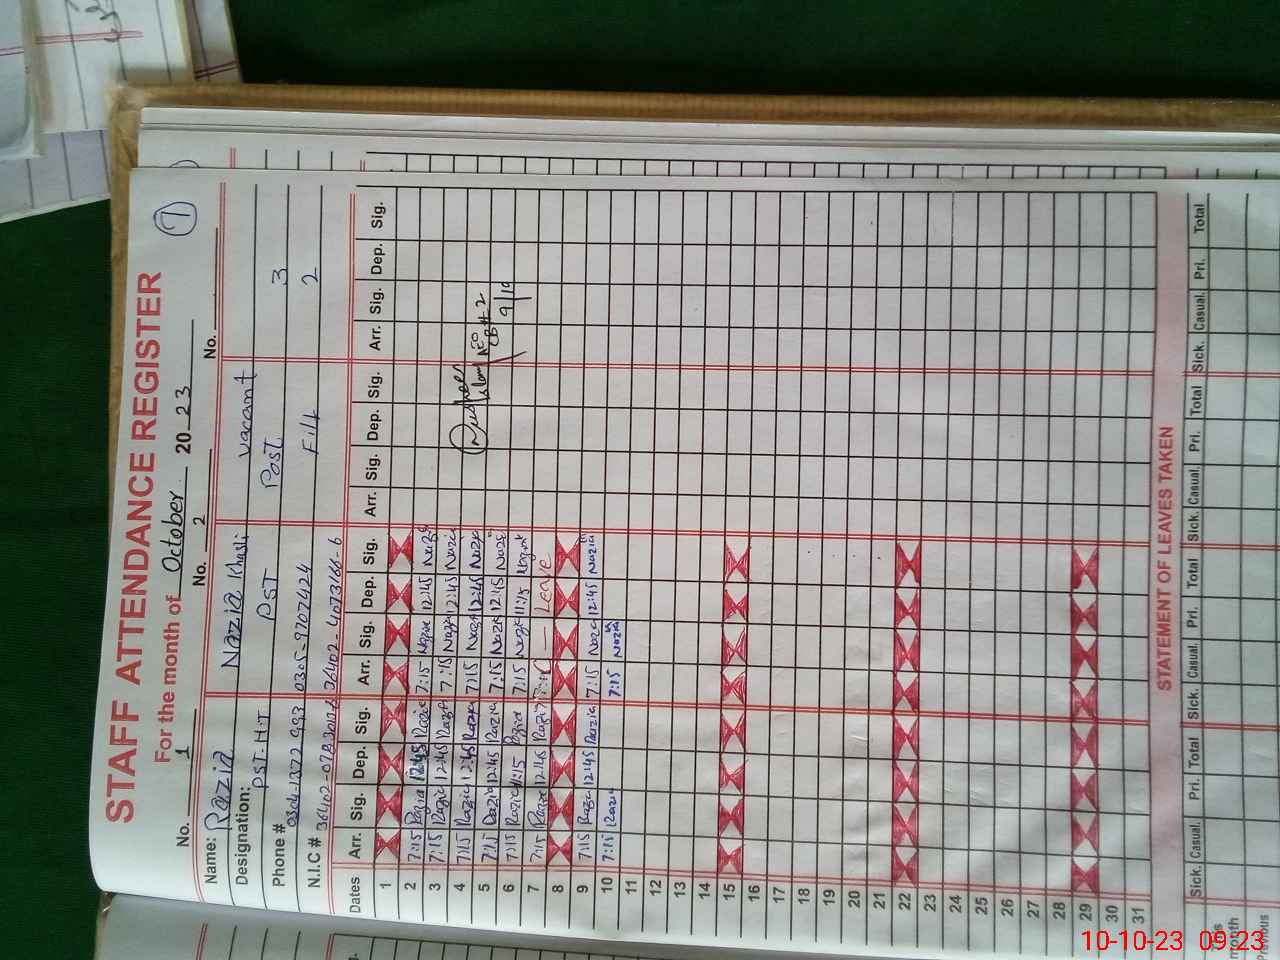 STAFF ATTENDANCE REGISTER
For the month of October 2023 7
No. 1 No. 2 No.
Name: Razia Nazia vacant
Designation: PST.HT PST Post 3
Phone # 0305-9707424 Fill 2
N.I.C #
Dates Arr. Sig. Dep. Sig. Arr. Sig. Dep. Sig. Arr. Sig. Dep. Sig. Arr. Sig. Dep. Sig.
1
2 7:15 Razia 12:45 Razia 7:15 Nazia 12:45 Nazia
3 7:15 Razia 12:45 Razia 7:15 Nazia 12:45 Nazia
4 7:15 Razia 12:45 Razia 7:15 Nazia 12:45 Nazia
5 7:15 Razia 12:45 Razia 7:15 Nazia 12:45 Nazia
6 7:15 Razia 11:15 Razia 7:15 Nazia 11:15 Nazia
7 7:15 Razia 12:45 Razia Leave
8
9 7:15 Razia 12:45 Razia 7:15 Nazia 12:45 Nazia
10 7:15 Razia 7:15 Nazia
11
12
13
14
15
16
17
18
19
20
21
22
23
24
25
26
27
28
29
30
31
AEO
9/10
STATEMENT OF LEAVES TAKEN
Sick. Casual. Pri. Total Sick. Casual. Pri. Total Sick. Casual. Pri. Total Sick. Casual. Pri. Total
month
Previous
10-10-23 09:23